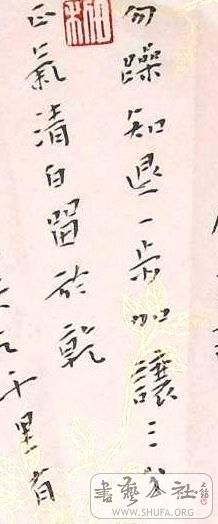 勿躁知退一步如讓三
正氣清白留於乾
千里有
書藝公社
WWW.SHUFA.ORG